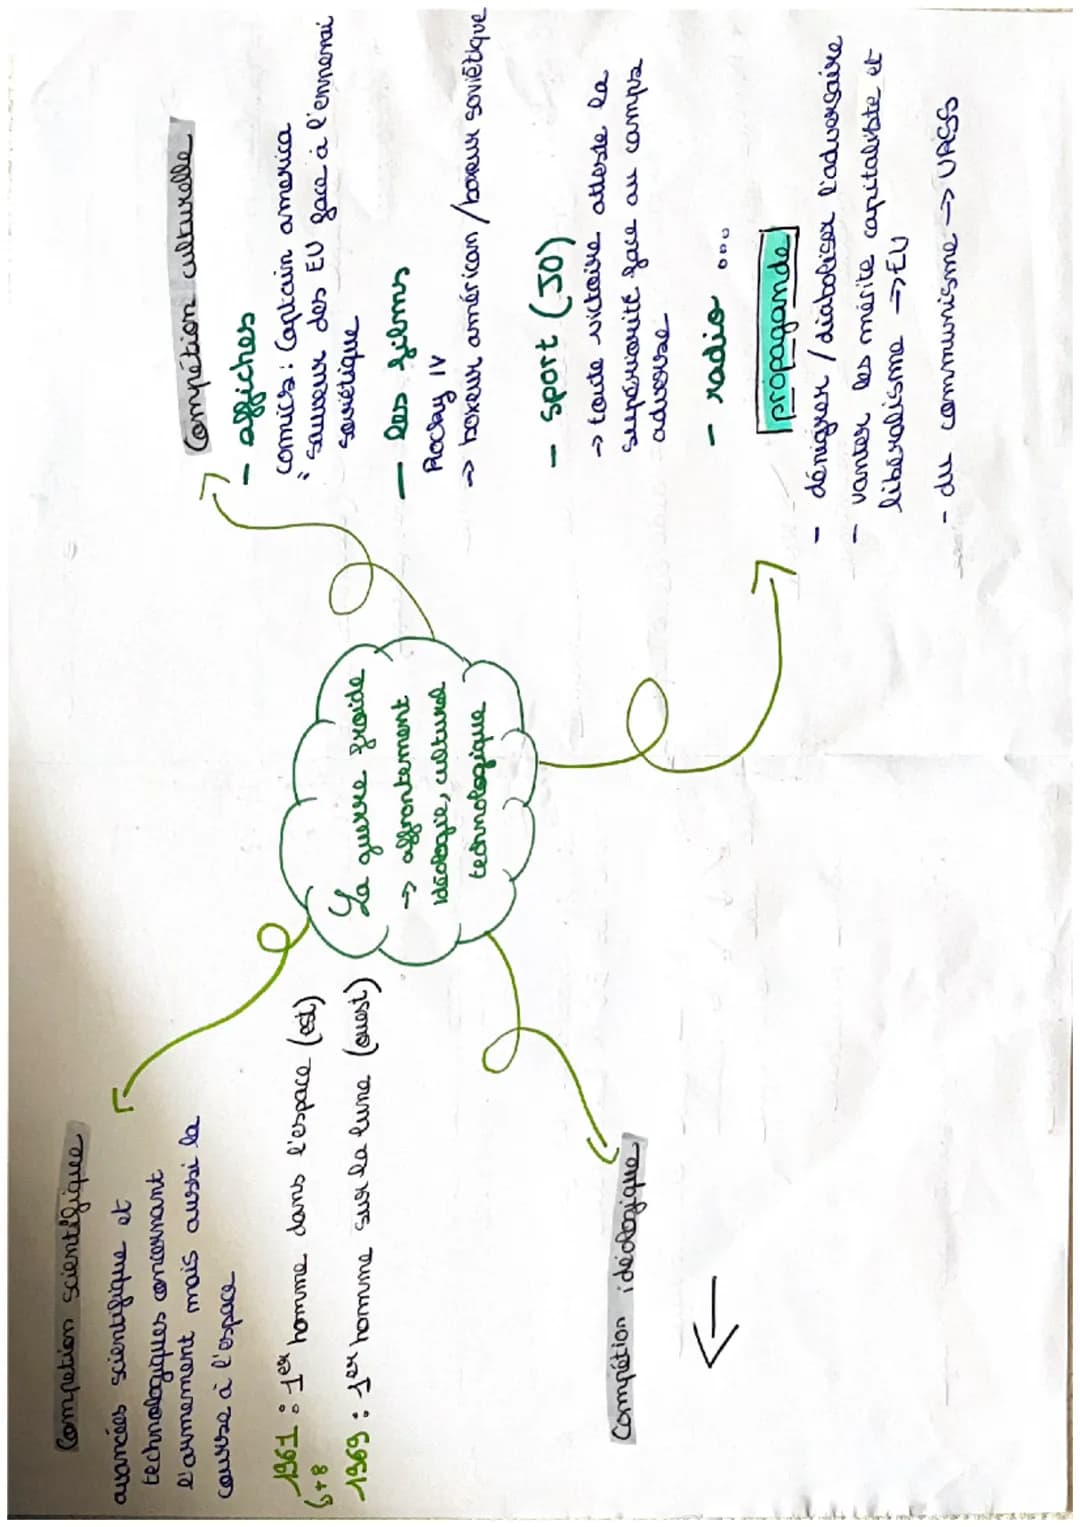 Competion scientifique
avancées scientifique et
technologiques concernant
l'armement mais aussi la
course à l'espace
1961 : 1er homme dans l'espace (est)
↳+8
1969 : 1er homme sur la lune (ouest)
La guerre froide
→ affrontement
idéologie, culturel
technologique
Compétion culturelle
- affiches
comics : Captain america
" sauveur des EU face à l'ennemi
soviétique
- les films
Rocky IV
→ boxeur américan / boxeur soviétique
- sport (JO)
→ toute victoire atteste la
supériorité face au camps
adverse
- radio ...
propagande
- dénigrer / diaboliser l'adversaire
- vanter les mérite capitaliste et
libéralisme → EU
- du communisme → URSS
Compétion idéologique